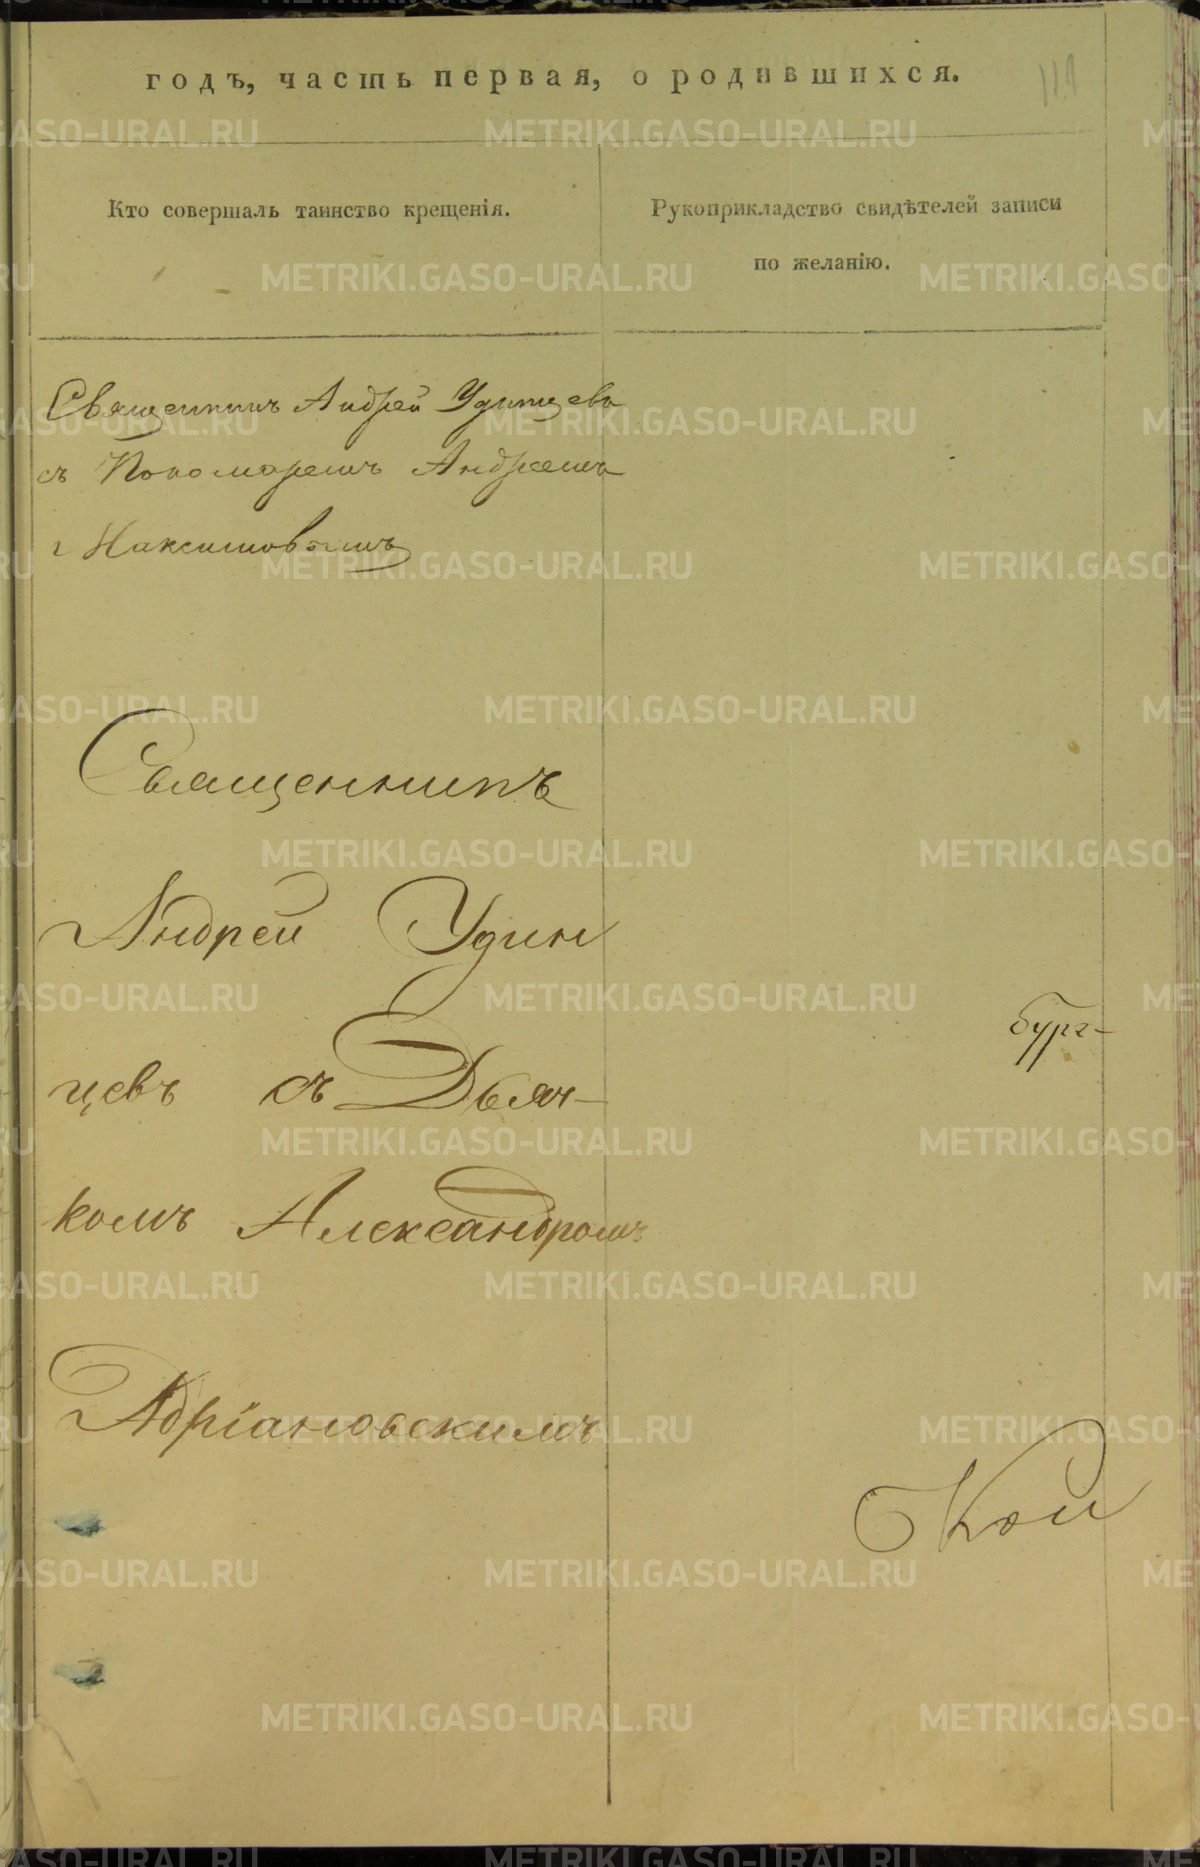 годъ, часть первая, о родившихся.
Кто совершалъ таинство крещенія.
Рукоприкладство свидѣтелей записи
по желанію.
Священникъ Андрей Удинцевъ
съ Пономаремъ Андреемъ
Максимовымъ
Священникъ
Андрей Удин
цевъ съ Дьяч-
комъ Александромъ
Адріановскимъ
бург-
METRIKI.GASO-URAL.RU